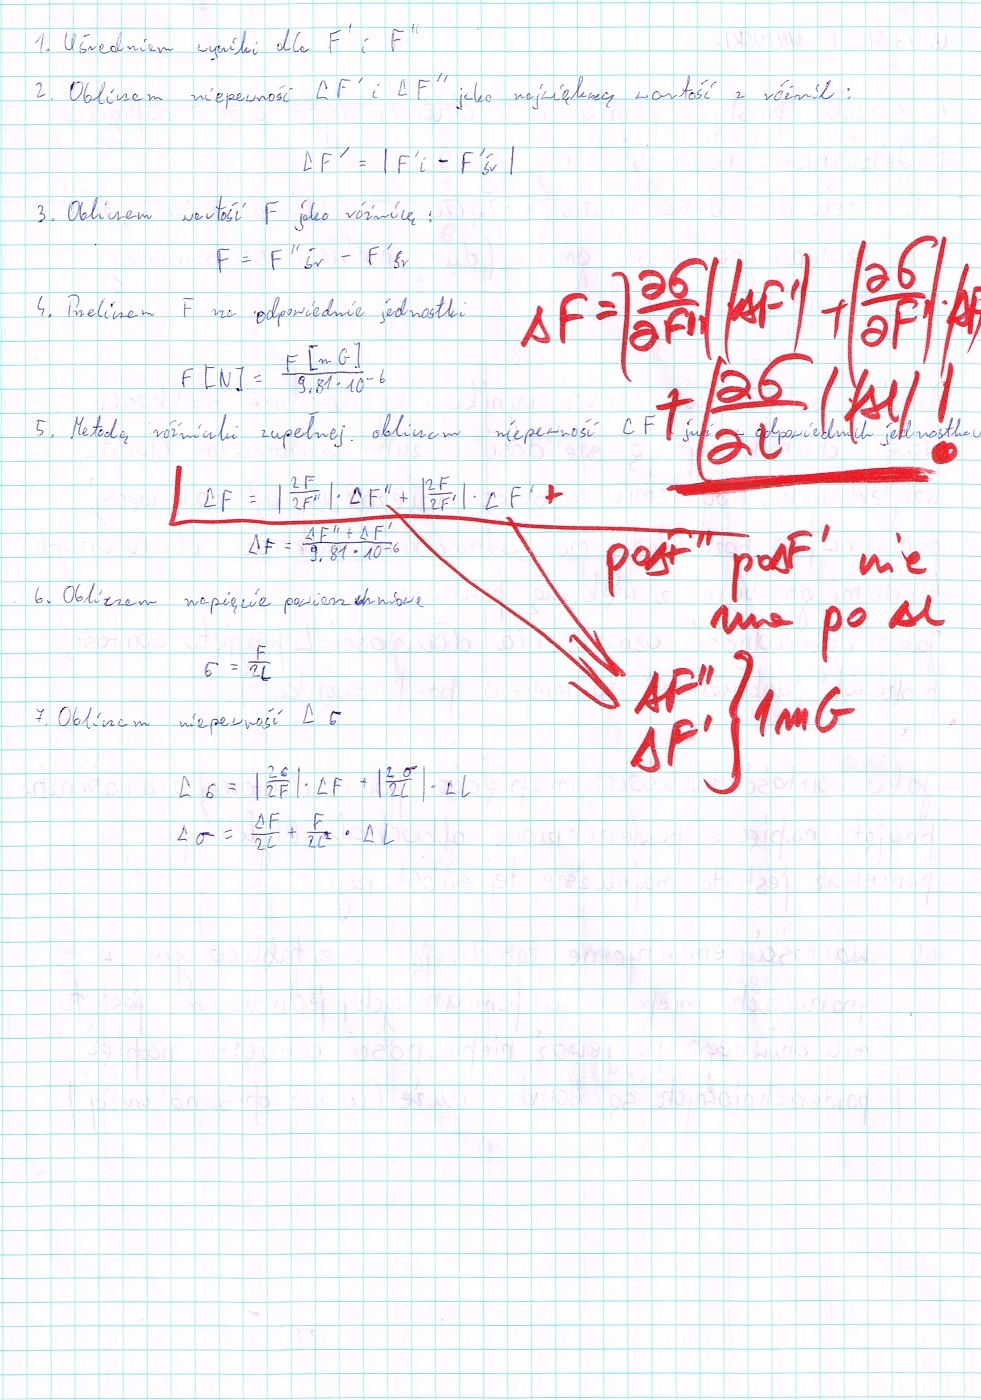 1. Uśredniam wyniki dla F' i F"
2. Obliczam niepewność ΔF' i ΔF" jako największą wartość z różnic:
ΔF' = |F'i - F'śr|
3. Obliczam wartość F jako różnicę:
F = F"śr - F'śr
4. Przeliczam F na odpowiednie jednostki
F [N] = F [mG] / 9.81·10⁻⁶
ΔF = |∂σ/∂F"| |ΔF'| + |∂σ/∂F'| · |ΔF
+ |∂σ/∂l| |Δl| !
5. Metodą różniczki zupełnej obliczam niepewność ΔF już w odpowiednich jednostkach
ΔF = |∂F/∂F"| · ΔF" + |∂F/∂F'| · ΔF' +
ΔF = ΔF" + ΔF' / 9.81·10⁻⁶
po ΔF" po ΔF' nie
ma po Δl
6. Obliczam napięcie powierzchniowe
σ = F/2L
ΔF"
ΔF' } 1mG
7. Obliczam niepewność Δσ
Δσ = |∂σ/∂F| · ΔF + |∂σ/∂L| · ΔL
Δσ = ΔF/2L + F/2L² · ΔL